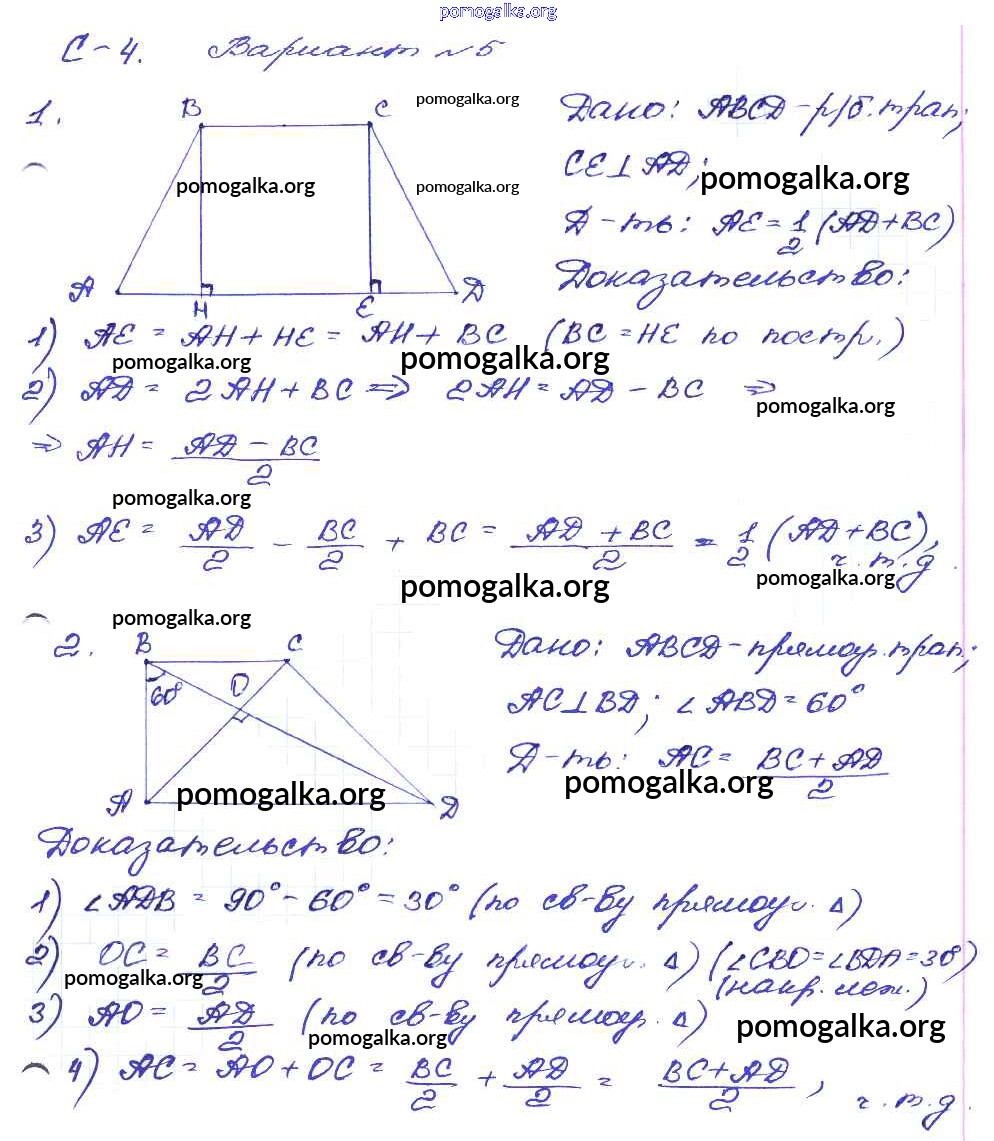 pomogalka.org
С-4. Вариант №5
1.
B C pomogalka.org
pomogalka.org pomogalka.org
A H E D
Дано: ABCD - р/б. трап;
CE⊥AD; pomogalka.org
Д-ть: AE = 1/2 (AD+BC)
Доказательство:
1) AE = AH + HE = AH + BC (BC = HE по постр.)
pomogalka.org pomogalka.org
2) AD = 2AH + BC => 2AH = AD - BC =>
pomogalka.org
=> AH = (AD - BC)/2
pomogalka.org
3) AE = AD/2 - BC/2 + BC = (AD + BC)/2 = 1/2 (AD+BC),
ч.т.д.
pomogalka.org pomogalka.org
pomogalka.org
2.
B C
60° O
A pomogalka.org D
Дано: ABCD - прямоуг. трап;
AC⊥BD; ∠ABD = 60°
Д-ть: AC = (BC + AD)/2
pomogalka.org
Доказательство:
1) ∠ADB = 90° - 60° = 30° (по св-ву прямоуг. Δ)
2) OC = BC/2 (по св-ву прямоуг. Δ) (∠CBD = ∠BDA = 30°)
pomogalka.org (накр. леж.)
3) AO = AD/2 (по св-ву прямоуг. Δ)
pomogalka.org pomogalka.org
4) AC = AO + OC = BC/2 + AD/2 = (BC + AD)/2, ч.т.д.